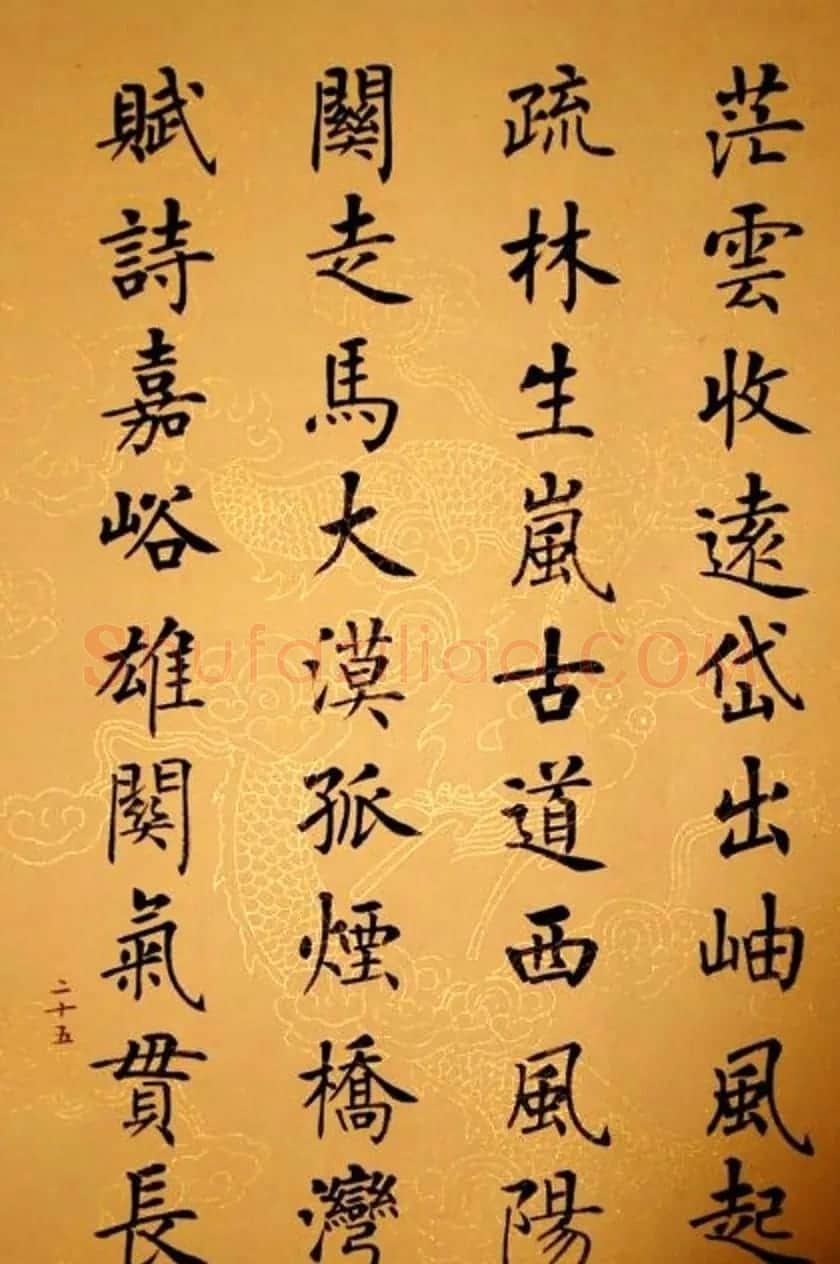 茫雲收遠岱出岫風起
疏林生嵐古道西風陽
關走馬大漠孤煙橋灣
賦詩嘉峪雄關氣貫長
二十五
Shufaziliao.COM